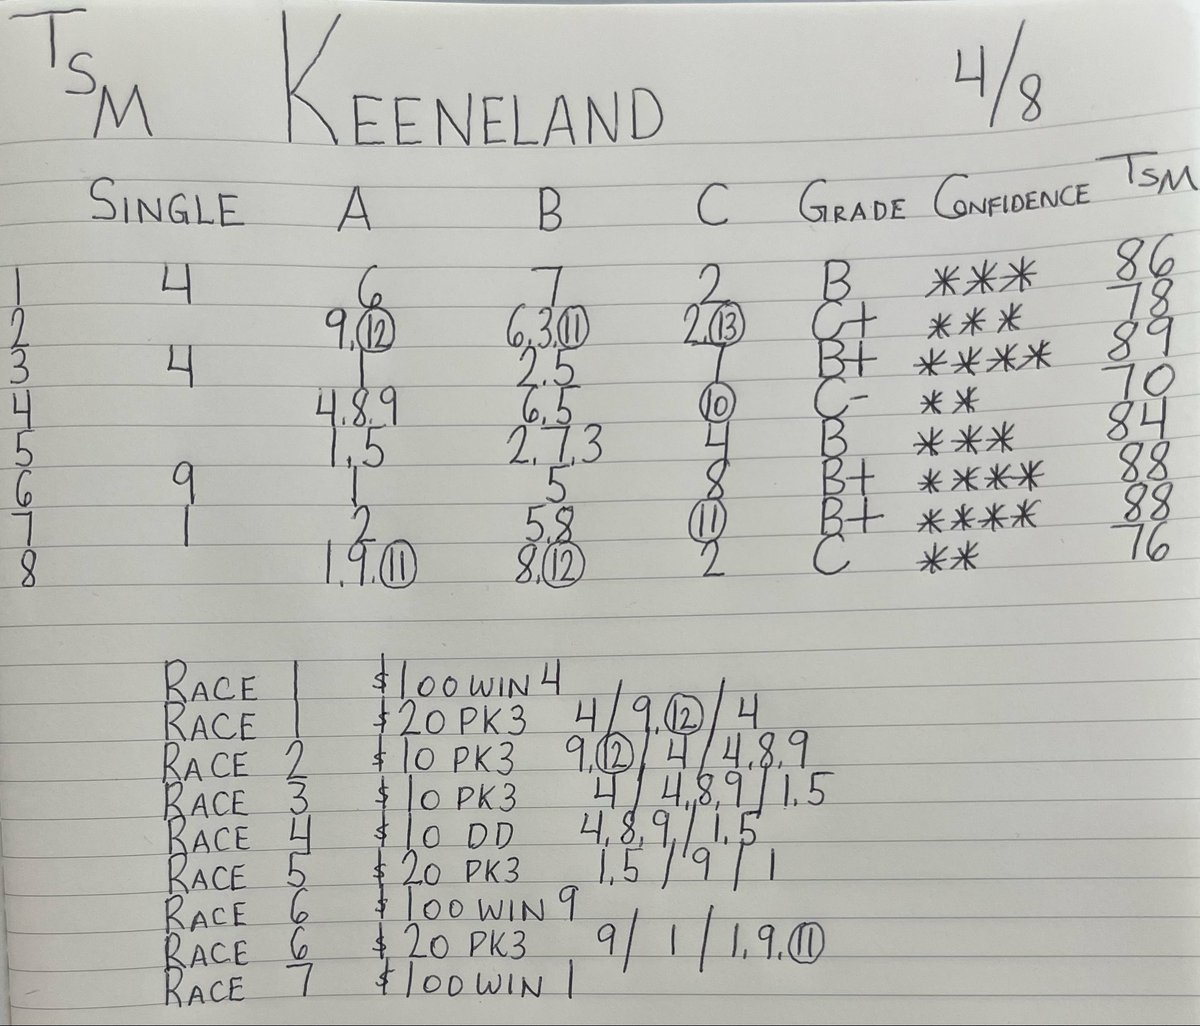 TSM KEENELAND 4/8
SINGLE A B C GRADE CONFIDENCE TSM
1 4 6 7 2 B *** 86
2 9,⑫ 6,3,⑪ 2,⑬ C+ *** 78
3 4 1 2,5 7 B+ **** 89
4 4,8,9 6,5 ⑩ C- ** 70
5 1,5 2,7,3 4 B *** 84
6 9 1 5 8 B+ **** 88
7 1 2 5,8 ⑪ B+ **** 88
8 1,9,⑪ 8,⑫ 2 C ** 76
RACE 1 $100 WIN 4
RACE 1 $20 PK3 4/9,⑫/4
RACE 2 $10 PK3 9,⑫/4/4,8,9
RACE 3 $10 PK3 4/4,8,9/1,5
RACE 4 $10 DD 4,8,9/1,5
RACE 5 $20 PK3 1,5/9/1
RACE 6 $100 WIN 9
RACE 6 $20 PK3 9/1/1,9,⑪
RACE 7 $100 WIN 1